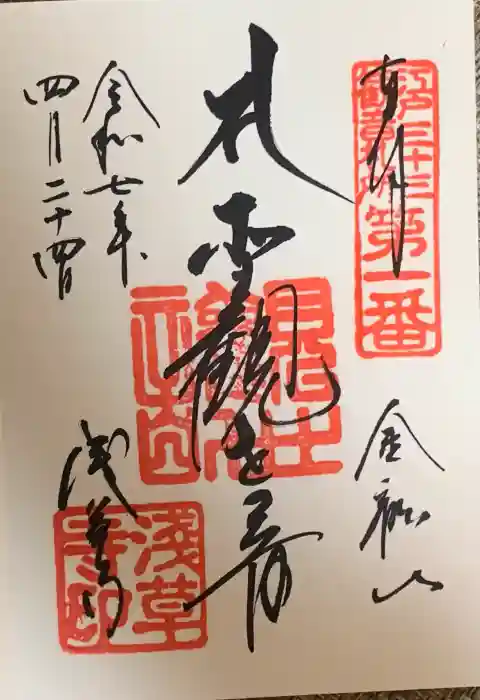 奉拝
江戸三十三
観音札所
第一番
金龍山
観世音
令和七年
四月二十四日
浅草寺
淺草
寺印